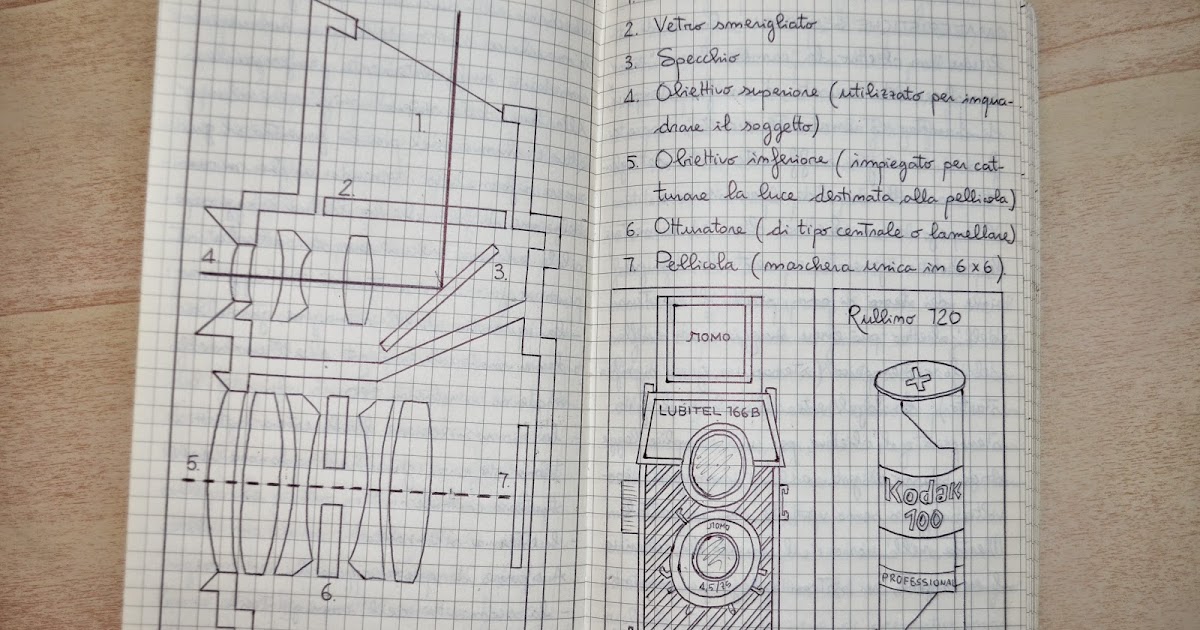 1.
2.
4.
3.
5.
7.
6.
2. Vetro smerigliato
3. Specchio
4. Obiettivo superiore (utilizzato per inqua-
drare il soggetto)
5. Obiettivo inferiore (impiegato per cat-
turare la luce destinata alla pellicola)
6. Otturatore (di tipo centrale o lamellare)
7. Pellicola (maschera unica in 6x6).
ЛОМО
LUBITEL 166B
ЛОМО
4,5/75
Rullino 120
Kodak
100
PROFESSIONAL